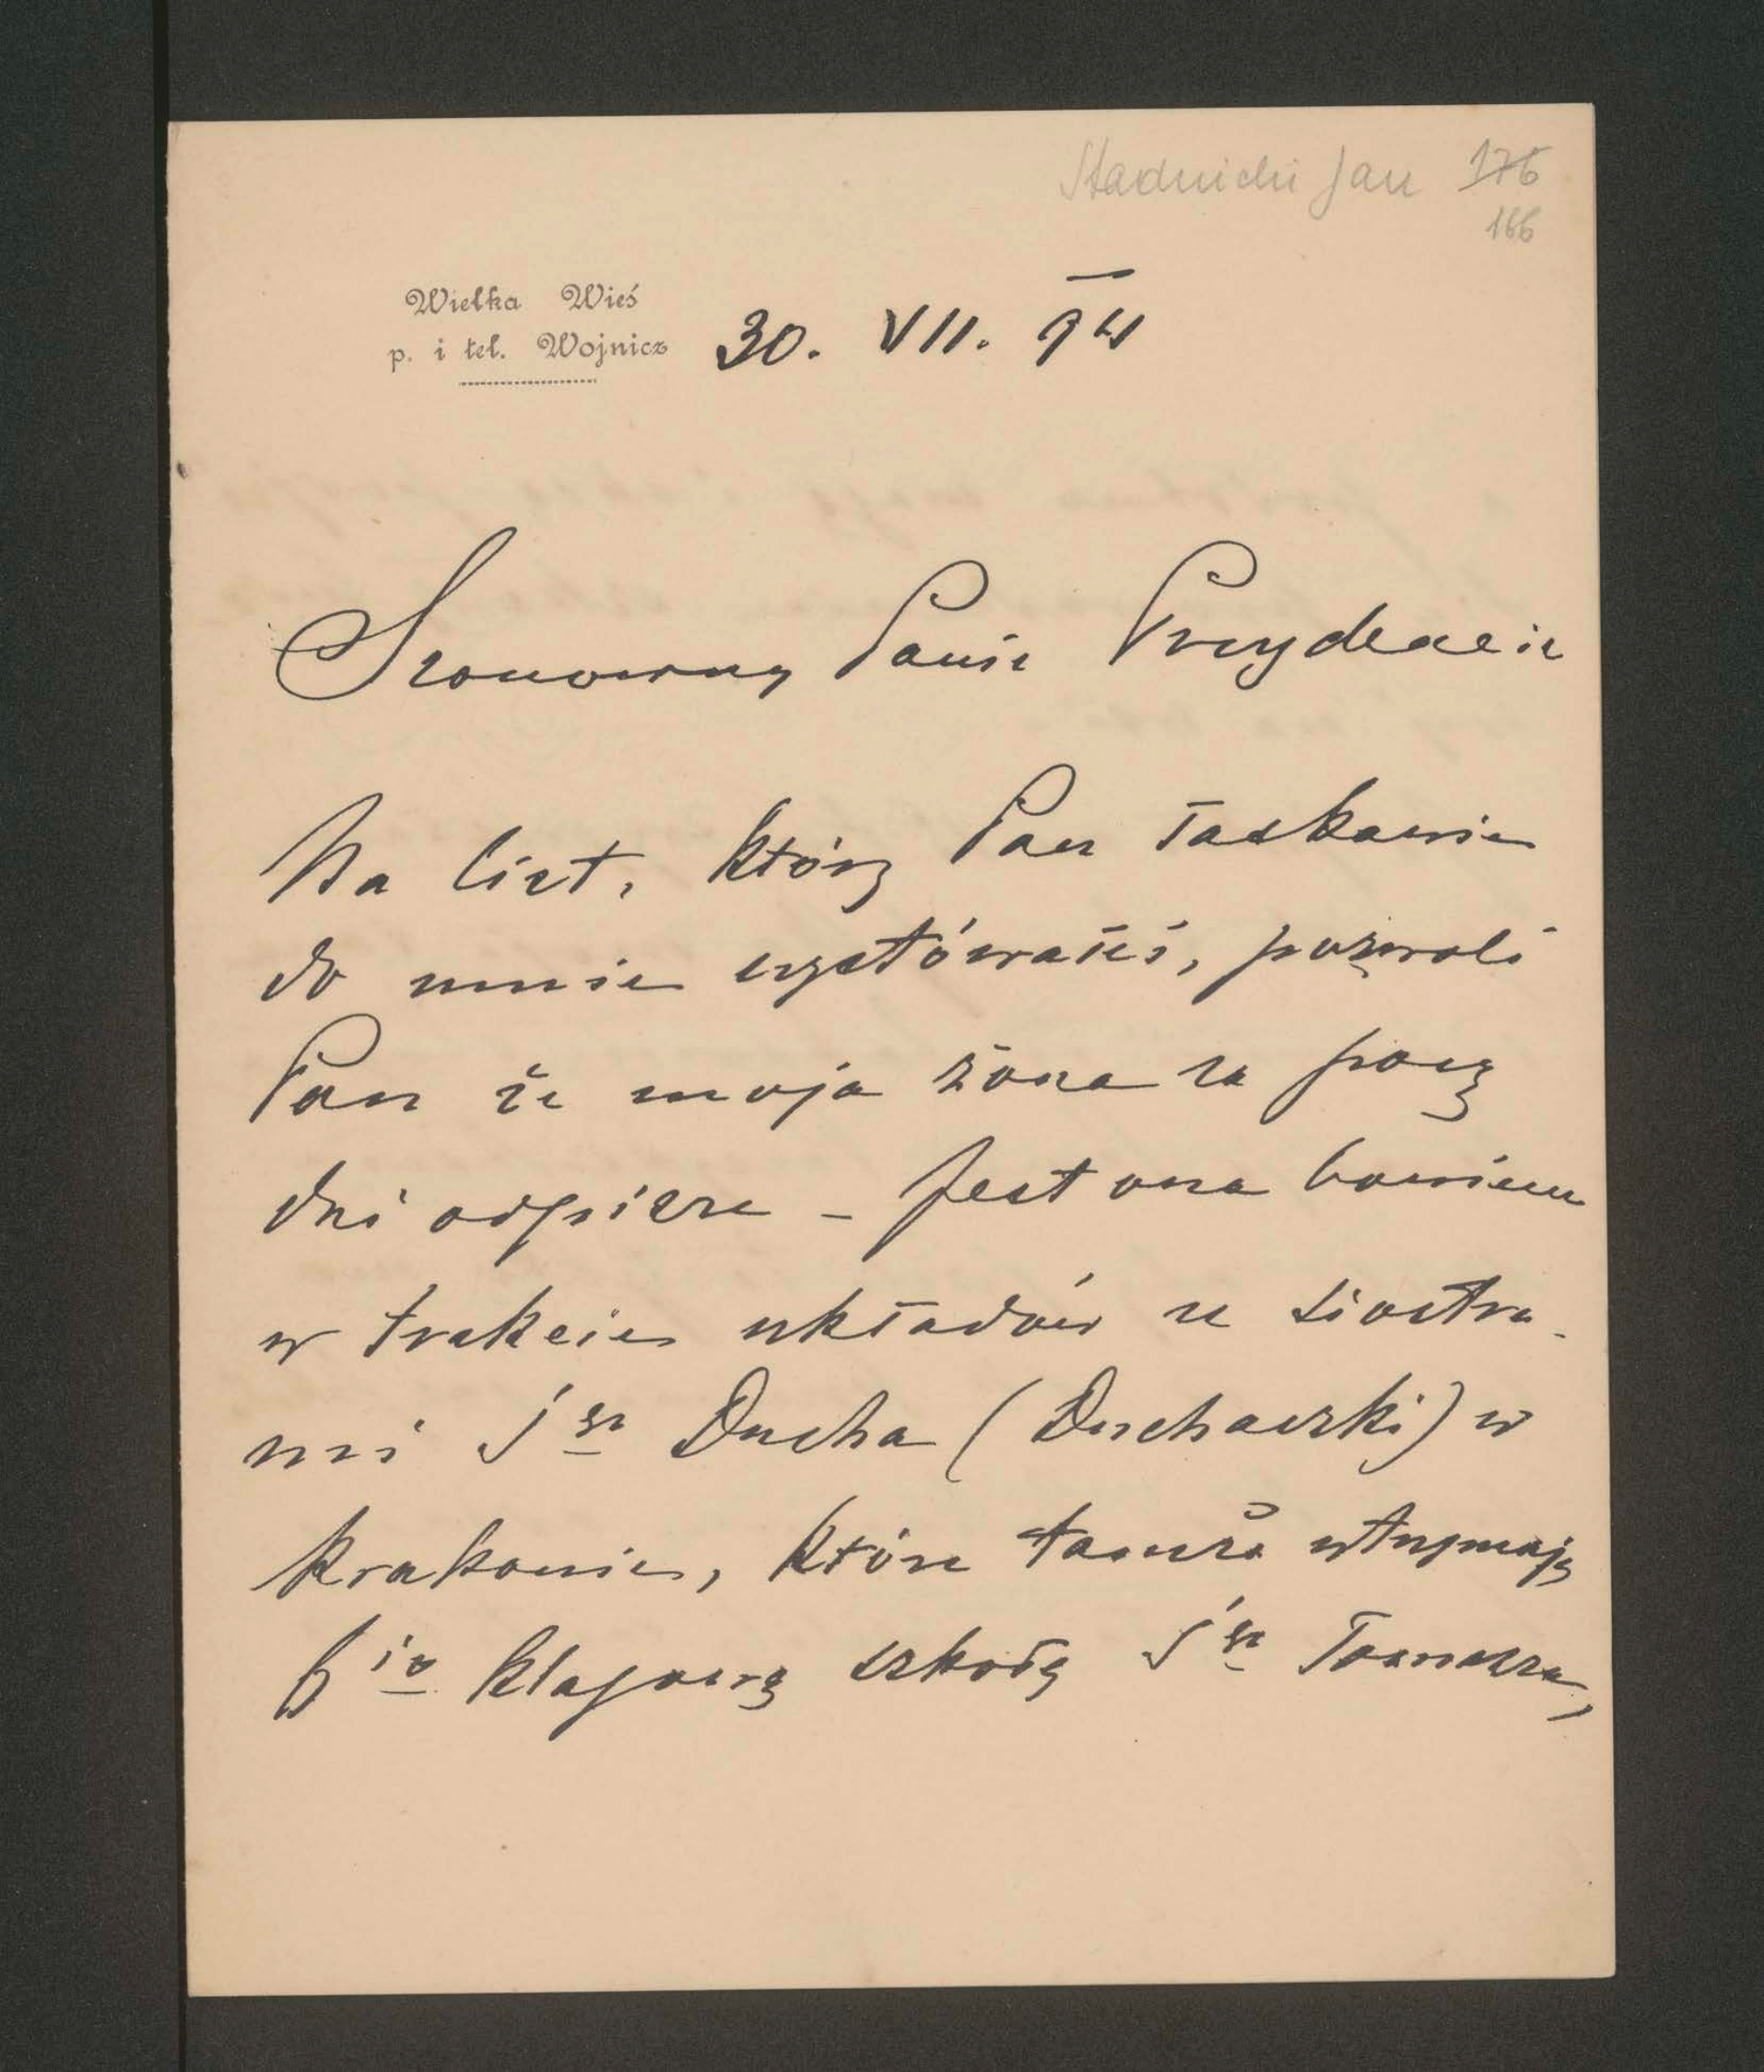 Stadnicki Jan 176
166
Wielka Wieś
p. i tel. Wojnicz 30. VII. 94
Szanowny Panie Prezydencie
Na list, który Pan łaskawie
do mnie wystówałeś, pozwoli
Pan że moja żona za parę
dni odpisze – Jest ona bowiem
w trakcie układów ze siostra-
mi Śgo Ducha (Duchaczki) w
Krakowie, które tamże utrzymują
6io klasową szkołę Śgo Tomasza,